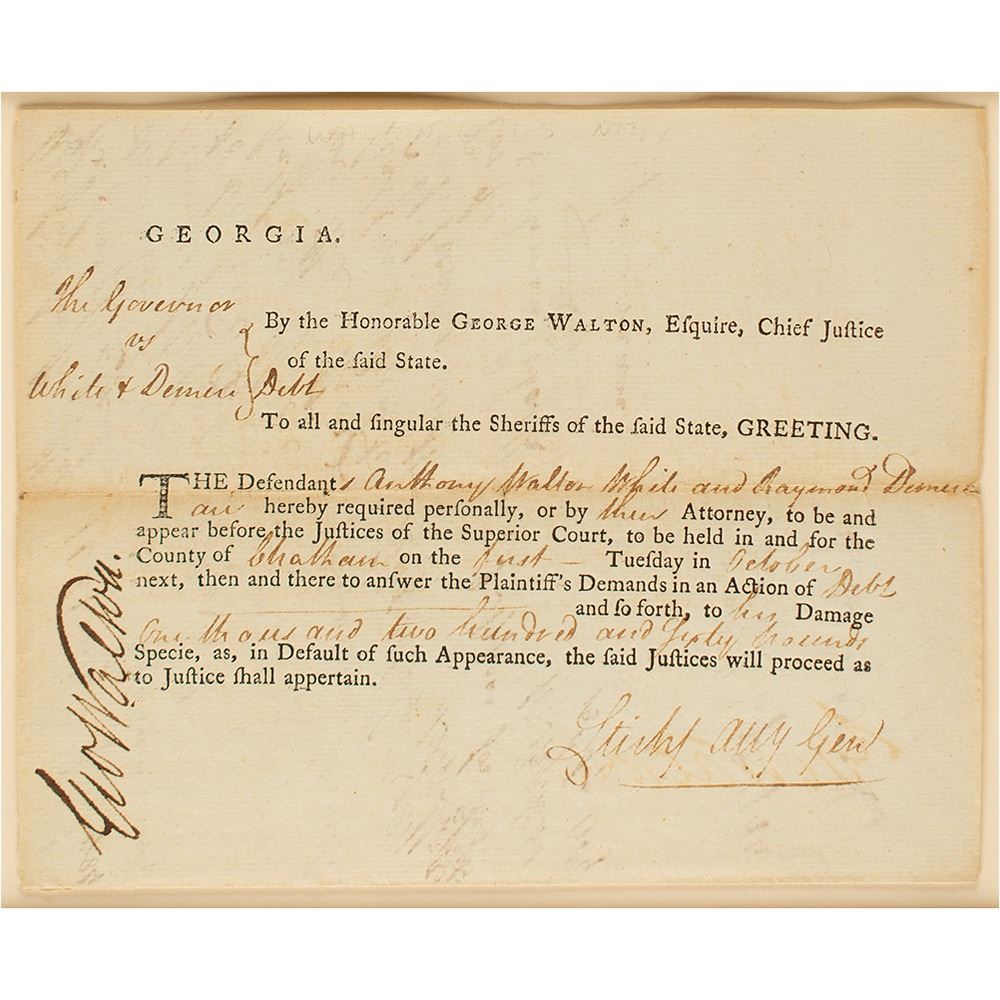 GEORGIA.
The Governor
vs
White & Demere } Debt
By the Honorable GEORGE WALTON, Eſquire, Chief Juſtice
of the ſaid State.
To all and ſingular the Sheriffs of the ſaid State, GREETING.
THE Defendants Anthony Walton White and Raymond Demere
are hereby required perſonally, or by their Attorney, to be and
appear before the Juſtices of the Superior Court, to be held in and for the
County of Chatham on the first Tueſday in October
next, then and there to anſwer the Plaintiff's Demands in an Action of Debt
and ſo forth, to his Damage
One thousand two hundred and sixty pounds
Specie, as, in Default of ſuch Appearance, the ſaid Juſtices will proceed as
to Juſtice ſhall appertain.
Atty Gen
Geo Walton.